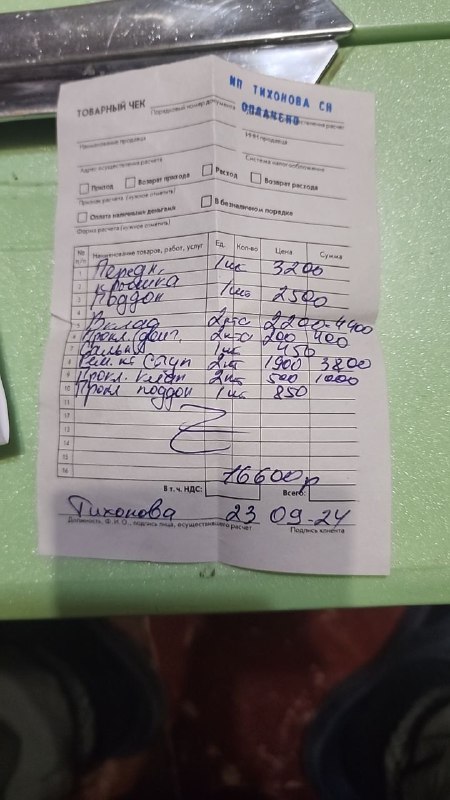 ИП ТИХОНОВА СН
ОПЛАЧЕНО
ТОВАРНЫЙ ЧЕК
Порядковый номер документа
Наименование продавца
ИНН продавца
Адрес осуществления расчета
Система налогообложения
Приход Возврат прихода Расход Возврат расхода
Признак расчета (нужное отметить)
Оплата наличными деньгами В безналичном порядке
Форма расчета (нужное отметить)
№ п/п Наименование товаров, работ, услуг Ед. Кол-во Цена Сумма
1 Передн. 1шт 3200
2 крышка
3 Поддон 1шт 2500
4
5 Вклад 2 2200-4400
6 Прокл. 2 200 400
7 1шт 450
8 Рем. кт Ступ 2шт 1900 3800
9 Прокл. 2шт 500 1000
10 Прокл поддон 1шт 850
11
12
13
14
15
16
16600р
В т. ч. НДС: Всего:
Тихонова 23 09-24
Должность, Ф. И. О., подпись лица, осуществлявшего расчет Подпись клиента